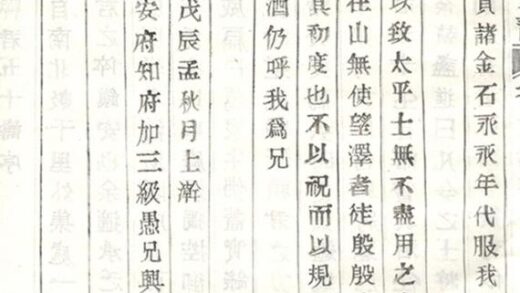 諸金石永永年代服我
以致太平士無不盡用之
在山無使望澤者徒殷殷
其初度也不以祝而以規
酒仍呼我爲兄
戊辰孟秋月上澣
安府知府加三級愚兄興